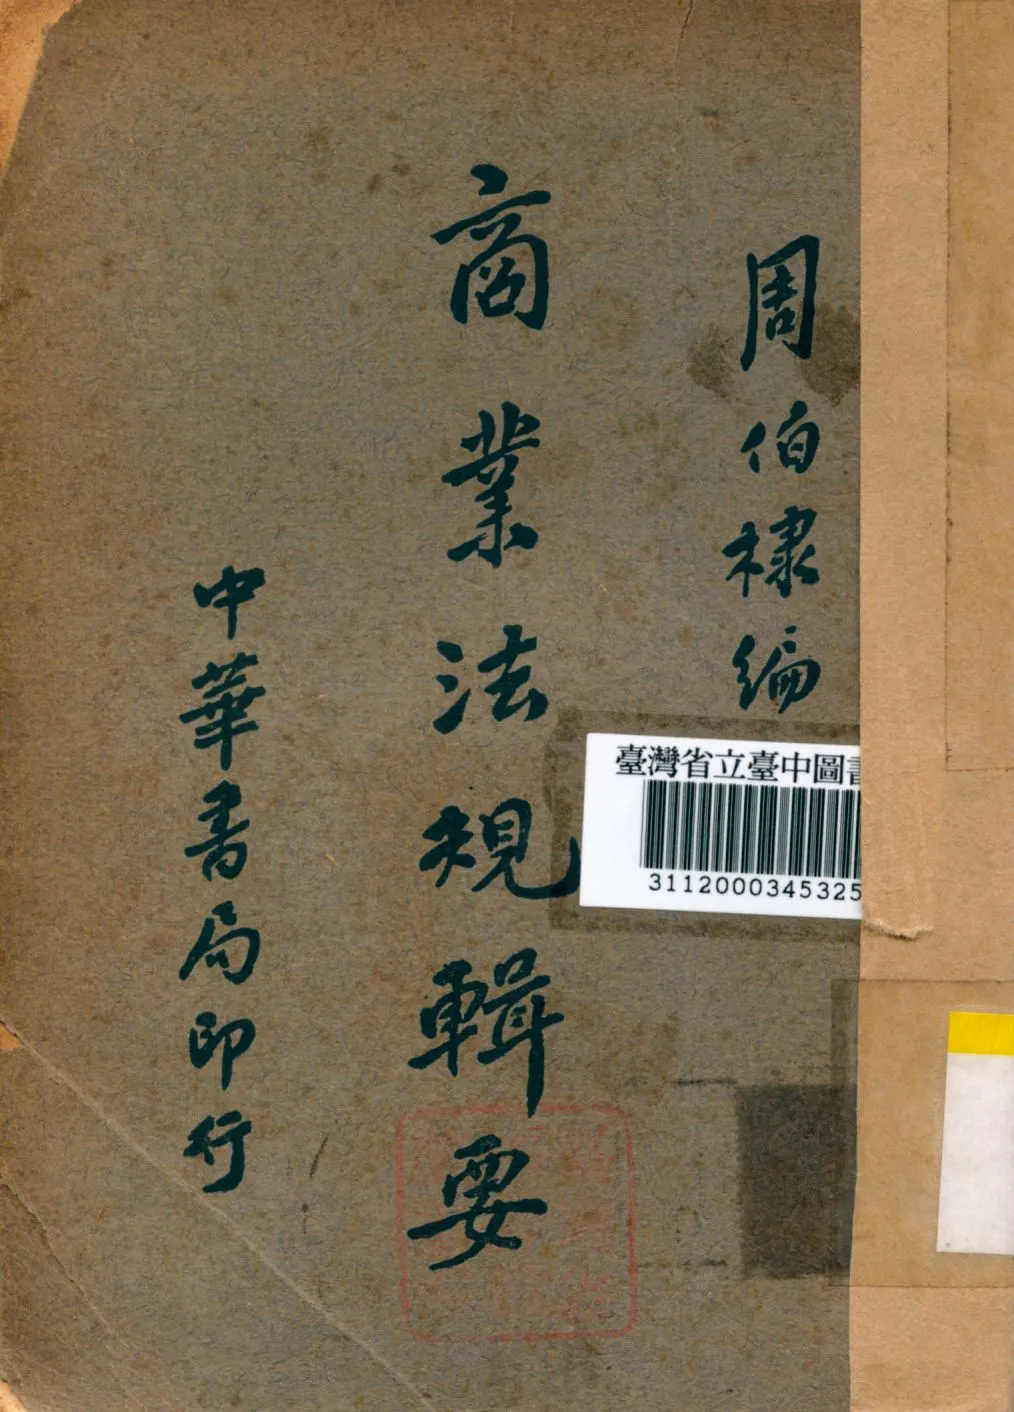 周伯棣編
商業法規輯要
中華書局印行
臺灣省立臺中圖書
3112000345325